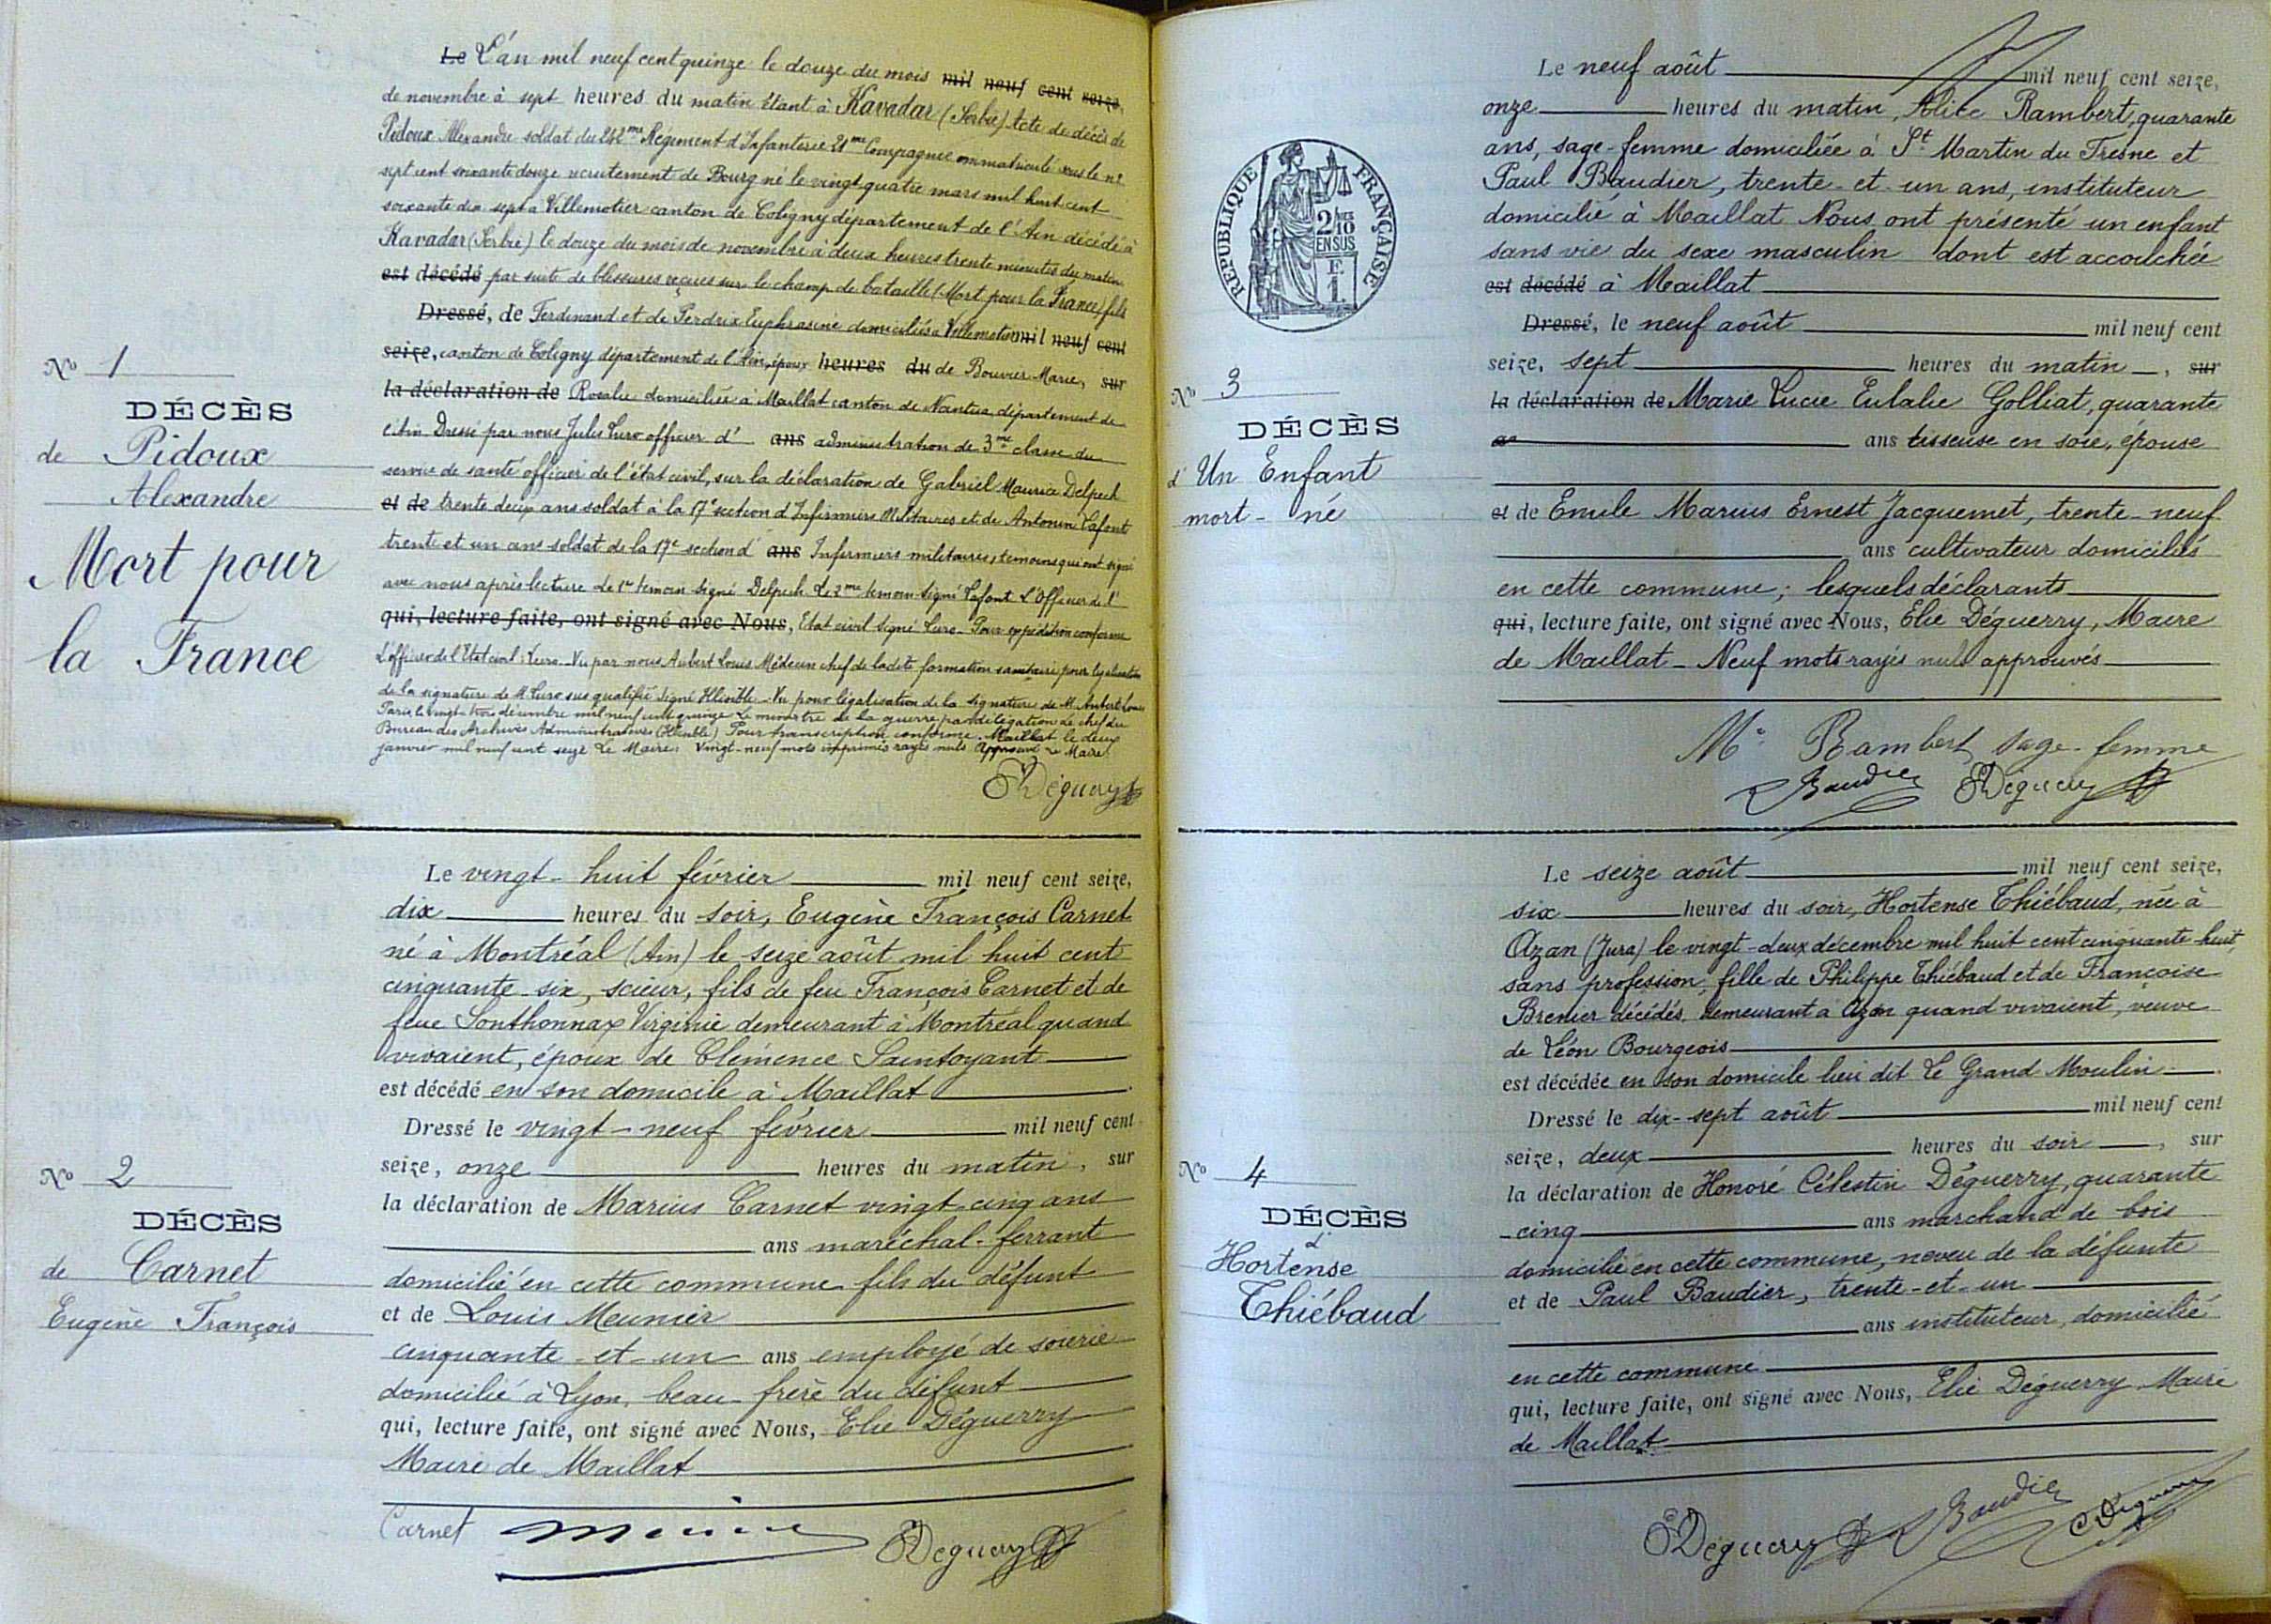 Le L'án mil neuf cent quinze le douze du mois mil neuf cent seize,
de novembre à sept heures du matin Etant à Kavadar (Serbie) Acte de décès de
Pidoux Alexandre soldat du 242me Régiment d'Infanterie 21me Compagnie immatriculé sous le n°
sept cent soixante douze recrutement de Bourg né le vingt quatre mars mil huit cent
soixante dix sept à Villemotier canton de Coligny département de l'Ain décédé à
Kavadar (Serbie) le douze du mois de novembre à deux heures trente minutes du matin
est décédé par suite de blessures reçues sur le champ de bataille (Mort pour la France) fils
Dressé, de Ferdinand et de Perdrix Euphrasine domiciliés à Villemotier mil neuf cent
seize, canton de Coligny département de l'Ain, époux heures du de Bouvier Marie, sur
la déclaration de Rosalie domiciliée à Maillat canton de Nantua département de
l'Ain Dressé par nous Jules Luro officier d' ans administration de 3me classe du
service de santé officier de l'état civil, sur la déclaration de Gabriel Maurice Delpech
et de trente deux ans soldat à la 17e section d'Infirmiers Militaires et de Antonin Lafont
trente et un ans soldat de la 17e section d' ans Infirmiers militaires, témoins qui ont signé
avec nous après lecture Le 1er témoin signé Delpech Le 2me témoin signé Lafont L'Officier de l'
qui, lecture faite, ont signé avec Nous, Etat civil signé Luro - Pour expédition conforme
L'officier de l'Etat civil : Luro - Vu par nous Aubert Louis Médecin chef de ladite formation sanitaire pour légalisation
de la signature de M. Luro sus qualifié signé Illisible - Vu pour légalisation de la signature de M. Aubert Louis
Paris, le vingt trois décembre mil neuf cent quinze Le ministre de la guerre par délégation Le chef du
Bureau des Archives Administratives (Illisible) Pour transcription conforme Maillat le deux
janvier mil neuf cent seize Le Maire : Vingt-neuf mots imprimés rayés nuls Approuvé Le Maire
EDéguerry
N° 1
DÉCÈS
de Pidoux
Alexandre
Mort pour
la France
Le vingt-huit février mil neuf cent seize,
dix heures du soir, Eugène François Carnet
né à Montréal (Ain) le seize août mil huit cent
cinquante-six, scieur, fils de feu François Carnet et de
feue Sonthonnax Virginie demeurant à Montréal quand
vivaient, époux de Clémence Saintoyant
est décédé en son domicile à Maillat
Dressé le vingt-neuf février mil neuf cent
seize, onze heures du matin, sur
la déclaration de Marius Carnet vingt-cinq ans
ans maréchal-ferrant
domicilié en cette commune fils du défunt
et de Louis Meunier
cinquante-et-un ans employé de soierie
domicilié à Lyon, beau-frère du défunt
qui, lecture faite, ont signé avec Nous, Elie Déguerry
Maire de Maillat
Carnet Meunier EDéguerry
N° 2
DÉCÈS
de Carnet
Eugène François
Le neuf août mil neuf cent seize,
onze heures du matin, Alice Rambert, quarante
ans, sage-femme domiciliée à St Martin du Fresne et
Paul Baudier, trente-et-un ans, instituteur
domicilié à Maillat Nous ont présenté un enfant
sans vie du sexe masculin dont est accouchée
est décédé à Maillat
Dressé, le neuf août mil neuf cent
seize, sept heures du matin, sur
la déclaration de Marie Lucie Eulalie Golliat, quarante
ans tisseuse en soie, épouse
et de Emile Marius Ernest Jacquemet, trente-neuf
ans cultivateur domiciliés
en cette commune ; lesquels déclarants
qui, lecture faite, ont signé avec Nous, Elie Déguerry, Maire
de Maillat - Neuf mots rayés nuls approuvés
Me Rambert sage-femme
Baudier EDéguerry
RÉPUBLIQUE FRANÇAISE
2/10
EN SUS
F.
1
N° 3
DÉCÈS
d' Un Enfant
mort-né
Le seize août mil neuf cent seize,
six heures du soir, Hortense Thiébaud, née à
Azan (Jura) le vingt-deux décembre mil huit cent cinquante-huit,
sans profession, fille de Philippe Thiébaud et de Françoise
Brenier décédés, demeurant à Azan quand vivaient, veuve
de Léon Bourgeois
est décédée en son domicile lieu dit Le Grand Moulin
Dressé le dix-sept août mil neuf cent
seize, deux heures du soir, sur
la déclaration de Honoré Célestin Déguerry, quarante
-cinq ans marchand de bois
domicilié en cette commune, neveu de la défunte
et de Paul Baudier, trente-et-un
ans instituteur, domicilié
en cette commune
qui, lecture faite, ont signé avec Nous, Elie Déguerry, Maire
de Maillat
EDéguerry Baudier CDéguerry
N° 4
DÉCÈS
d'
Hortense
Thiébaud